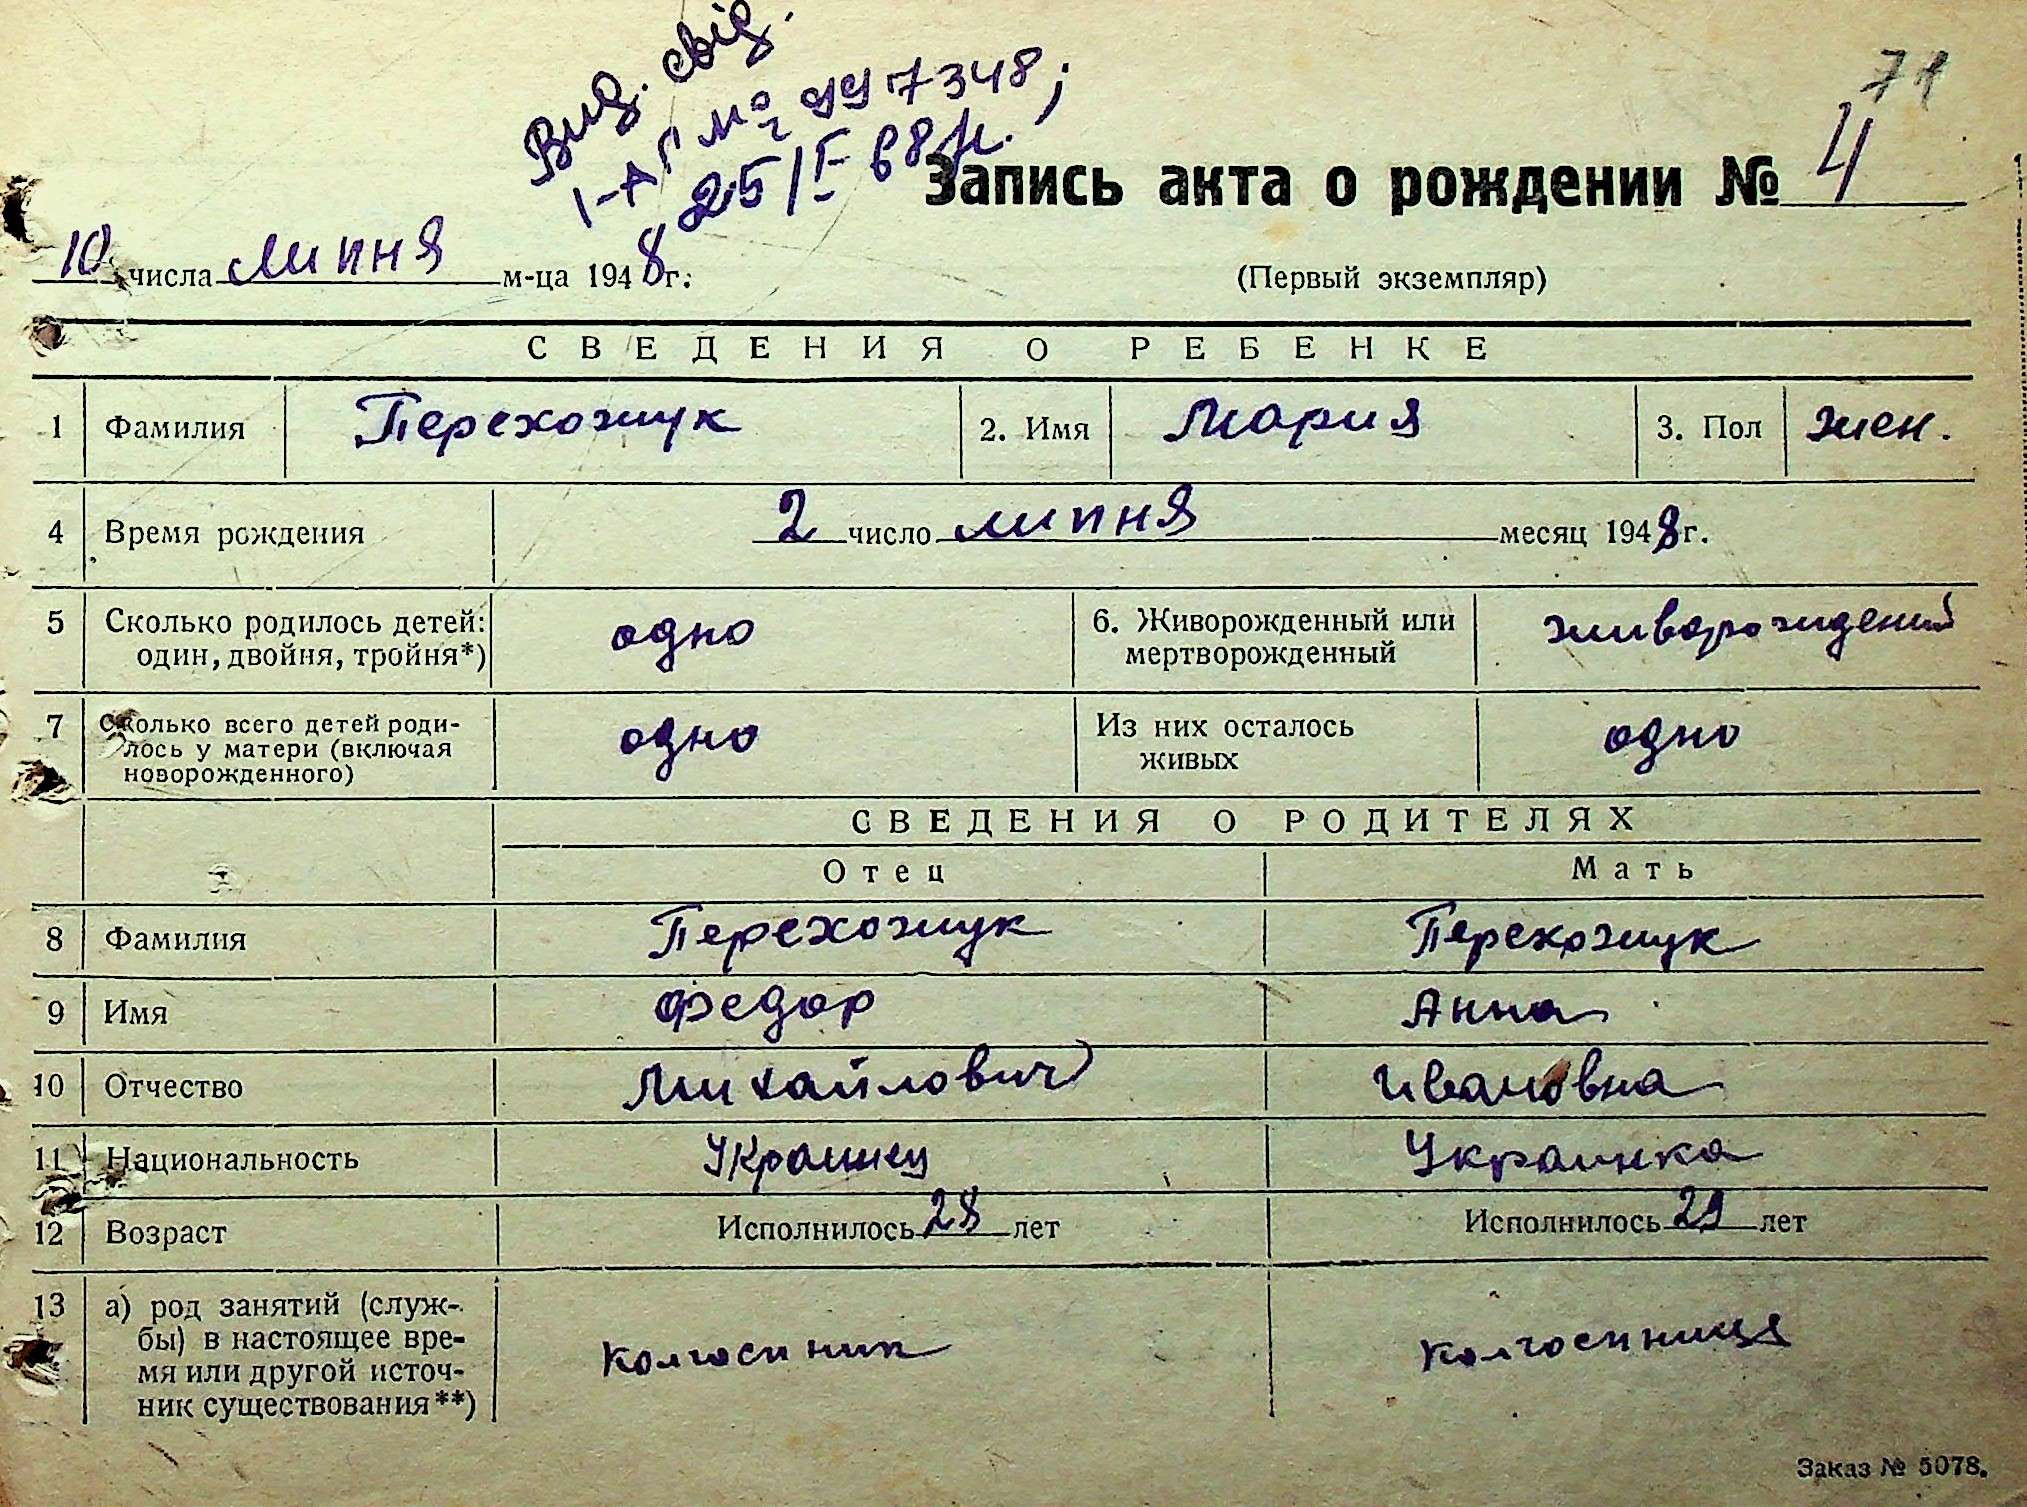 71
Вид. свід.
I-АГ № 997348;
25/I-68 р.
Запись акта о рождении № 4
10 числа липня м-ца 1948 г.
(Первый экземпляр)
СВЕДЕНИЯ О РЕБЕНКЕ
1 Фамилия Перехожук 2. Имя Мария 3. Пол жен.
4 Время рождения 2 число липня месяц 1948 г.
5 Сколько родилось детей: один, двойня, тройня*) одно 6. Живорожденный или мертворожденный живорождений
7 Сколько всего детей родилось у матери (включая новорожденного) одно Из них осталось живых одно
СВЕДЕНИЯ О РОДИТЕЛЯХ
Отец Мать
8 Фамилия Перехожук Перехожук
9 Имя Федор Анна
10 Отчество Михайлович Ивановна
11 Национальность Украинец Украинка
12 Возраст Исполнилось 28 лет Исполнилось 29 лет
13 а) род занятий (служ-
бы) в настоящее вре-
мя или другой источ-
ник существования**) колгоспник колгоспниця
Заказ № 5078.